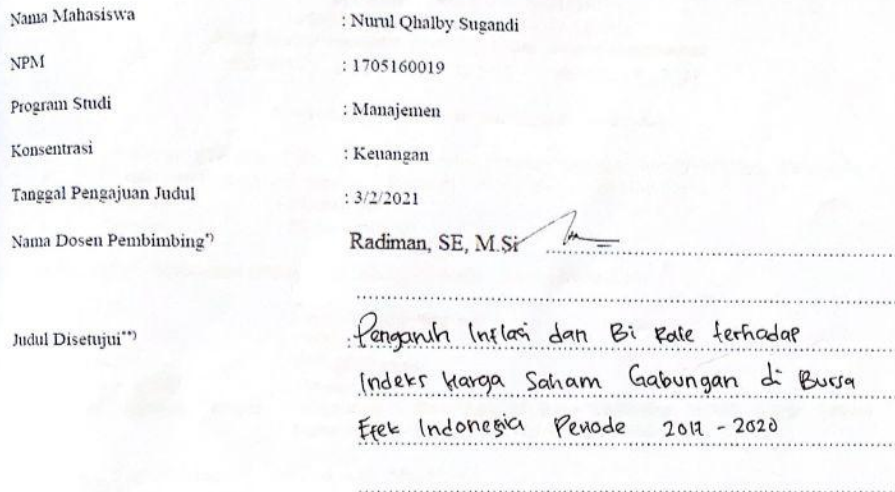 Nama Mahasiswa : Nurul Qhalby Sugandi
NPM : 1705160019
Program Studi : Manajemen
Konsentrasi : Keuangan
Tanggal Pengajuan Judul : 3/2/2021
Nama Dosen Pembimbing*) Radiman, SE, M.Si
Judul Disetujui**) : Pengaruh Inflasi dan Bi Rate terhadap
Indeks Harga Saham Gabungan di Bursa
Efek Indonesia Periode - 2020